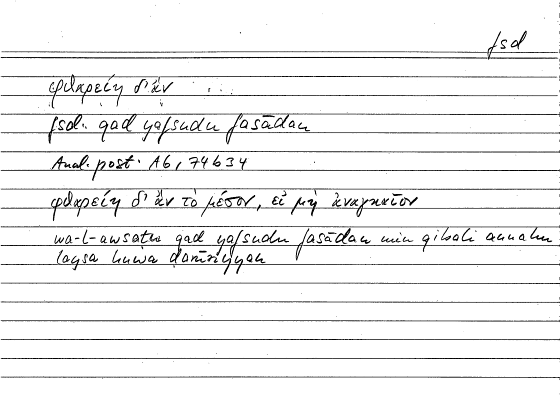 fsd
φθαρείη δ' ἄν ...
fsd: qad yafsudu fasādan
Anal. post. A6, 74b34
φθαρείη δ' ἄν τὸ μέσον, εἰ μὴ ἀναγκαῖον
wa-l-awsaṭu qad yafsudu fasādan min qibali annahu
laysa huwa ḍarūriyyan